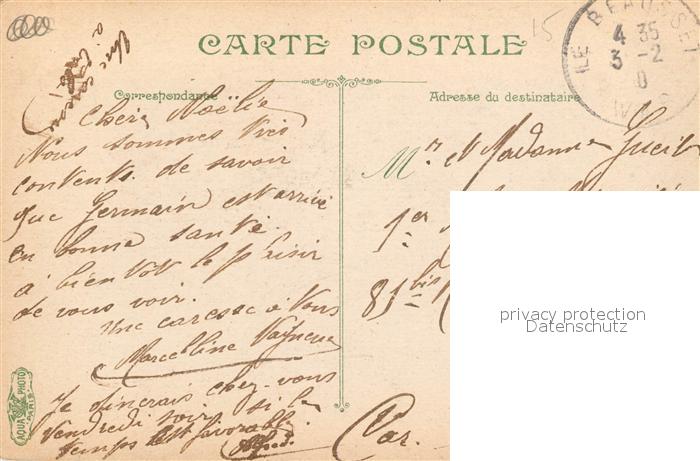 CARTE POSTALE
Correspondance
Adresse du destinataire
LE BEAUSSET
4 35
3 -2
Une caresse
à
Chère Noëlie
Nous sommes très
contents de savoir
que Germain est arrivé
en bonne santé.
à bientôt le plaisir
de vous voir.
Une caresse à tous
Marcelline
Je dinerais chez-vous
vendredi soir, si le
temps est favorable.
Alfred.
Mr et Madame
1er
81bis
Var.
AQUA PHOTO
PARIS
15
privacy protection
Datenschutz